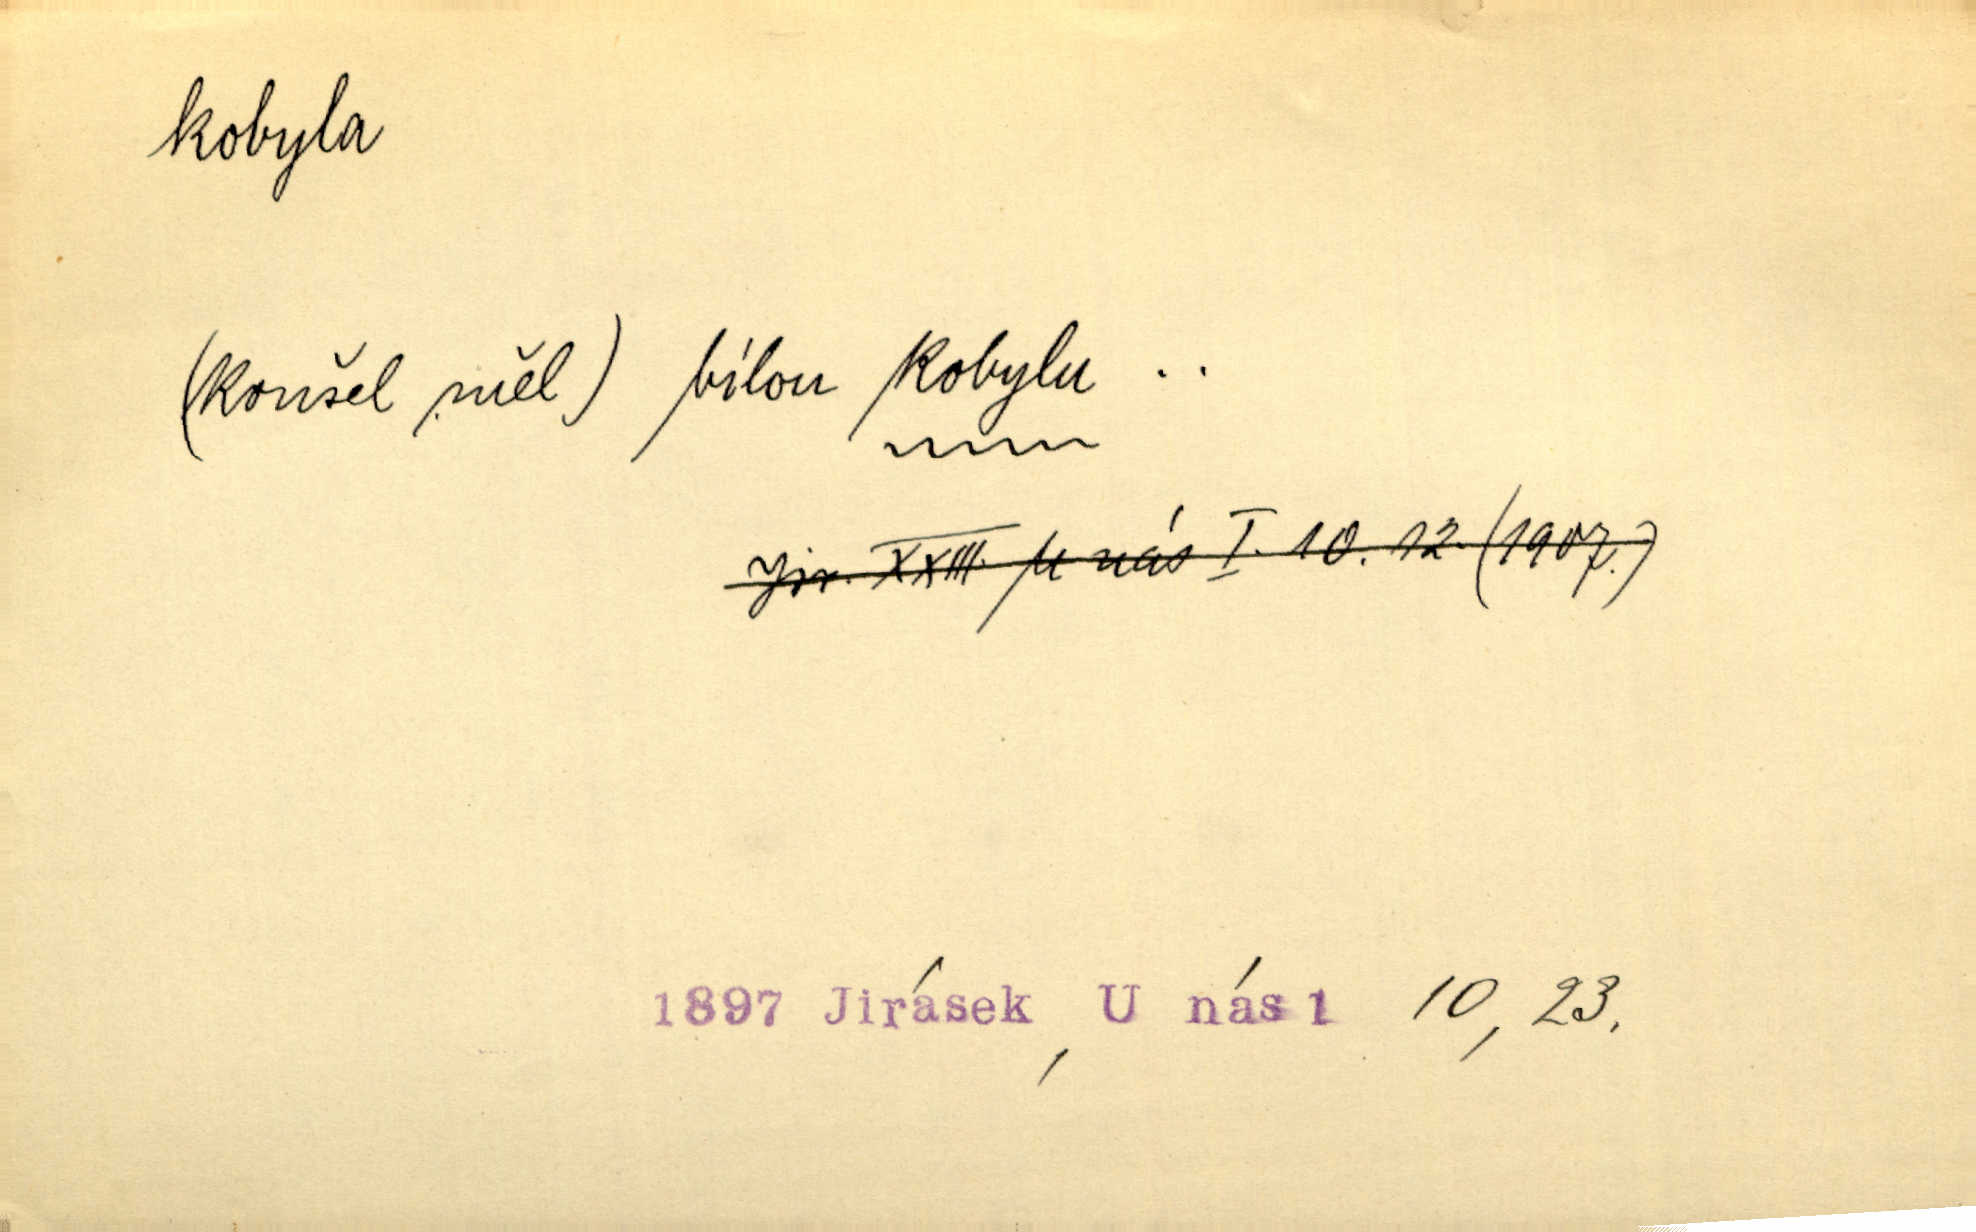 kobyla
(Konšel měl) bílou kobylu ..
Jir. XXIII. U nás I. 10. 12. (1907.)
1897 Jirásek, U nás 1 10, 23.